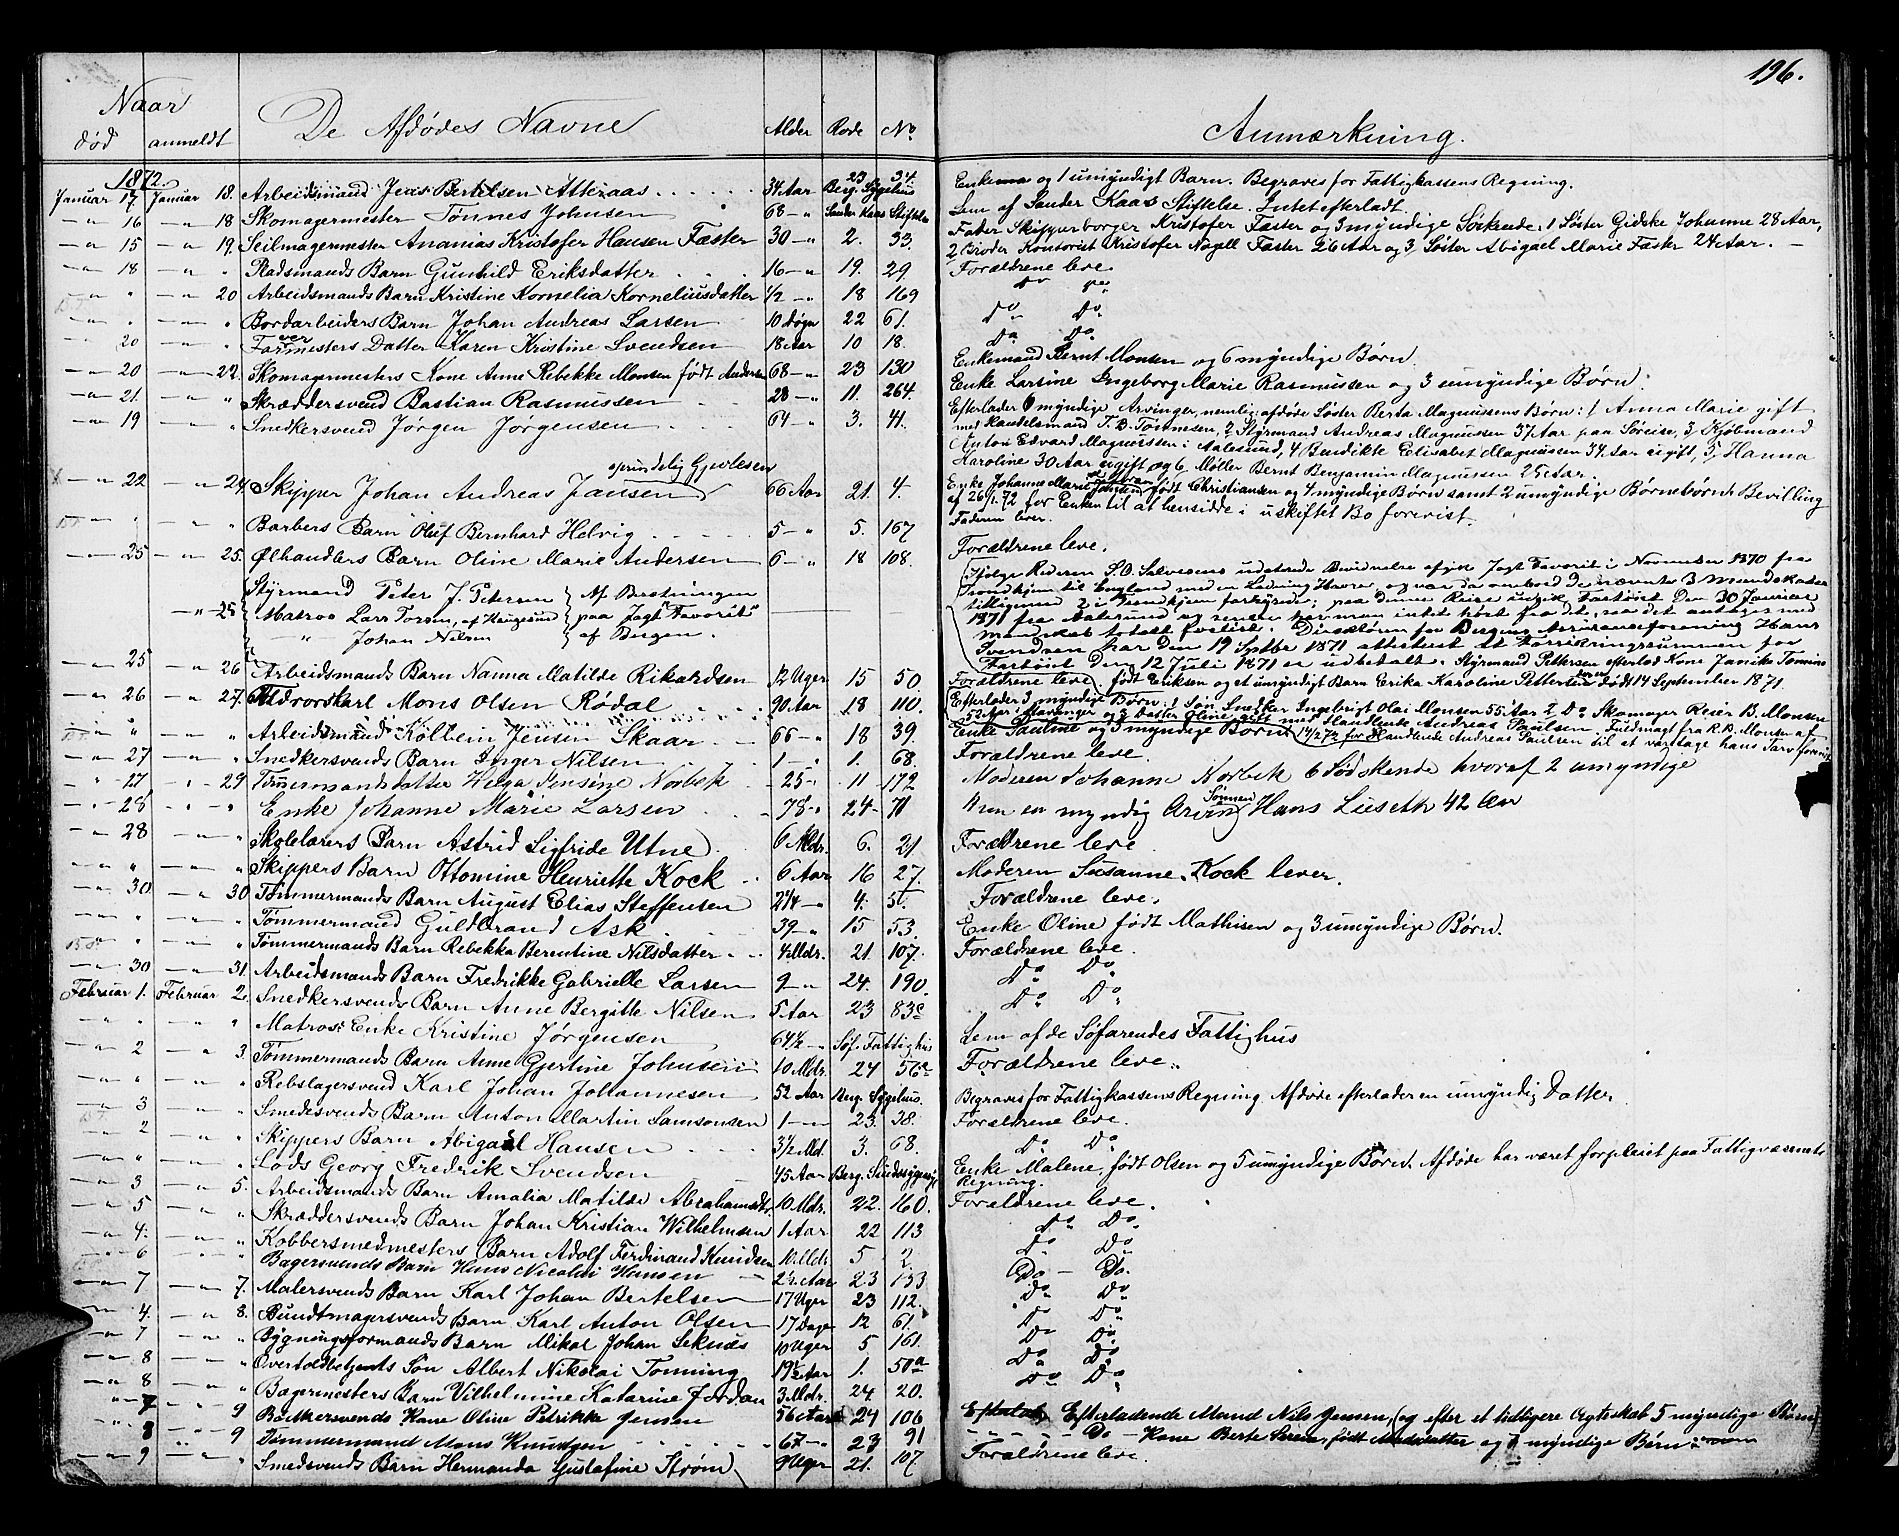 196.
Naar
død anmeldt De Afdødes Navne Alder Rode No Anmærkning.
1872.
Januar 17. Januar 18. Arbeidsmand Jens Bertelsen Atteraas 34 Aar Berg. Sygehus 23 34 Enke og 1 umyndigt Barn. Begraves for Fattigkassens Regning.
16 18 Skomagermester Tønnes Johnsen 68 Sander Kaas Stiftelse Lem af Sander Kaas Stiftelse. Intet efterladt.
15 19. Seilmagermester Ananias Kristofer Hansen Fæster 30 2. 33. Fader Skipperborger Kristofer Fæster og 3 myndige Søskende: 1 Søster Gidske Johanne 28 Aar,
2 Broder Kontorist Kristofer Nagell Fæster 26 Aar og 3, Søster Abigael Marie Fæster 24 Aar.
18 " Pladsmands Barn Gunhild Eriksdatter 16 19. 29. Forældrene leve.
" 20 Arbeidsmands Barn Kristine Kornelia Korneliusdatter 1/2 18 169 Do Do
" " Bordarbeiders Barn Johan Andreas Larsen 10 Døgn 22 61. Do Do
20 " Farvermesters Datter Karen Kristine Svendsen 18 Aar 10 18. Do Do
20 22. Skomagermesters Kone Anne Rebekke Monsen født Andersen 68 23 130 Enkemand Bernt Monsen og 6 myndige Børn.
21. " Skræddersvend Bastian Rasmussen 28 11. 264. Enke Larsine Ingeborg Marie Rasmussen og 3 umyndige Børn.
19 " Snedkersvend Jørgen Jørgensen 64 3. 41. Efterlader 6 myndige Arvinger, nemlig: afdøde Søster Berta Magnussens Børn: 1 Anna Marie gift
med Handelsmand T. B. Tønnesen, 2 Styrmand Andreas Magnussen 37 Aar paa Søreise, 3, Kjøbmand
Anton Edvard Magnussen i Aalesund, 4 Bendikte Elisabet Magnussen 34 Aar ugift, 5, Hanna
Karoline 30 Aar ugift og 6, Møller Bernt Benjamin Magnussen 25 Aar.
oprindelig Gjertsen
22 24. Skipper Johan Andreas Jansen 66 Aar 21. 4. Enke Johanne Marie Jansen født Christiansen og 4 myndige Børn samt 2 umyndige Børnebørn. Bevilling
af 26/1.72 for Enken til at hensidde i uskiftet Bo forevist.
" " Barbers Barn Oluf Bernhard Helvig 5 5. 167 Faderen lever.
25 25. Ølhandlers Barn Oline Marie Andersen 6 18 108. Forældrene leve.
25 Styrmand Peter J. Petersen Af Besætningen
Matros Lars Torsen, af Haugesund paa Jagt "Favorit"
" Johan Nilsen af Bergen.
Ifølge Rederen S. O. Salvesens udstedte Bevidnelse afgik Jagt Favorit i November 1870 fra
Trondhjem til England med en Ladning Havre, og var da ombord de nævnte 3 Mandskaber
tilligemed 2 i Trondhjem forhyrede; paa denne Reise indgik Fartøiet den 30 Januar
1871 fra Aalesund og senere har man intet hørt fra det, saa det antages med
Mandskab totalt forlist. Direktøren for Bergens Assuranceforening Hans
Svendsen har den 19 Septbr 1871 attesteret at Forsikringssummen for
Fartøiet den 12 Juli 1871 er udbetalt. Styrmand Pettersen efterlod Kone Janike Tomine
født Eriksen og et umyndigt Barn Erika Karoline Pettersen født 14 September 1871.
25 26 Arbeidsmands Barn Nanna Matilde Rikardsen 12 Uger 15 50 Forældrene leve.
26 27. Mons Olsen Rødal 90 Aar 18 110. Efterlader 3 myndige Børn: 1 Søn Snedker Ingebrigt Olai Monsen 55 Aar 2 Do Skomager Reier B. Monsen
52 Aar i Stavanger og 3 Datter Oline gift med Handlende Andreas Paulsen. Fuldmagt fra R. B. Monsen af
14/2 72 for Handlende Andreas Paulsen til at varetage hans Tarv forevist
" " Arbeidsmand Kolbein Jensen Skaar 66 18 39. Enke Pauline og 3 myndige Børn
27 " Snedkersvends Barn Inger Nilsen 1 1. 68. Forældrene leve.
27 29 Tømmermandsdatter Helga Jensine Norbek 25 11 172 Moderen Johanne Norbek 6 Sødskende hvoraf 2 umyndige
28 " Enke Johanne Marie Larsen 78 24 71 Kun en myndig Arving Sønnen Hans Lieseth 42 Aar
28 " Skolelærers Barn Astrid Sigfride Utne 6 Mdr. 6. 21 Forældrene leve
" " Skippers Barn Ottomine Henriette Kock 6 Aar 16 27. Moderen Susanne Kock lever.
30 30 Tømmermands Barn August Elias Steffensen 2 1/4 4. 51. Forældrene leve.
" " Tømmermand Guldbrand Ask 39 15 53. Enke Oline født Mathisen og 3 umyndige Børn.
" " Tømmermands Barn Rebekka Berentine Nilsdatter 4 Mdr. 21. 107. Forældrene leve
30 31. Arbeidsmands Barn Fredrikke Gabrielle Larsen 9 24. 190. Do Do
Februar 1. Februar 2. Snedkersvends Barn Anne Bergitte Nilsen 5 Aar 23 83c Do Do
" " Matros Enke Kristine Jørgensen 64 1/2 Søf. Fattighus Lem af de Søfarendes Fattighus
2 3. Tømmermands Barn Anne Gjertine Johnsen 10 Mdr. 24 56a Forældrene leve.
" " Rebslagersvend Karl Johan Johannesen 52 Aar Berg. Sygehus. Begraves for Fattigkassens Regning. Afdøde efterlader en umyndig Datter.
3 " Smedesvends Barn Anton Martin Samsonsen 1 23. 38. Forældrene leve.
2 " Skippers Barn Abigael Hansen 3 1/2 Md. 3. 68. Do Do
" " Lods Georg Fredrik Svendsen 45 Aar Berg. Sindssygeasyl Enke Malene, født Olsen og 5 umyndige Børn. Afdøde har været forpleiet paa Fattigvæsenets
Regning.
3 5. Arbeidsmands Barn Amalia Matilde Abrahamsdtr. 10 Mdr. 22. 160. Forældrene leve.
5 " Skræddersvends Barn Johan Kristian Wilhelmsen 1 Aar 22 113 Do Do
4. " Kobbersmedmesters Barn Adolf Ferdinand Knudsen 10 Mdr. 5 2. Do Do
6 " Bagersvends Barn Hans Nicolai Hansen 2 1/2 Aar 23 153 Do Do.
7 7. Malersvends Barn Karl Johan Bertelsen 17 Uger 23 112. Do Do
4. 8. Bundtmagersvends Barn Karl Anton Olsen 17 Dage 12 61. Do Do
7 " Bygningsformands Barn Mikal Johan Seknus 10 Uger 5 161. Do Do.
8 " Overtoldbetjents Søn Albert Nikolai Tonning 19 1/2 Aar 1. 50a Do Do
8 " Bagermesters Barn Vilhelmine Katarine Jordan 3 Mdr. 24. 20. Do Do
7 9 Bødkersvends Kone Oline Petrikke Jensen 56 Aar 24 106 Efterladende Mand Nils Jensen, (og efter et tidligere Ægteskab 5 myndige Børn)
8 9 Tømmermand Mons Knudsen 67 23 91 Do Kone Berte Serine, født Madsdatter og myndige Børn
9 " Smedsvends Barn Hermanda Gustafine Strøm 9 Uger 21. 107 Forældrene leve.